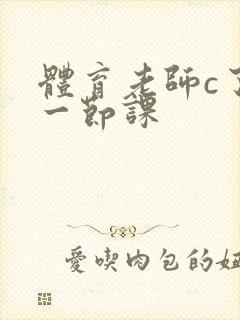 體育老師c了
一節課
愛喫肉包的妞